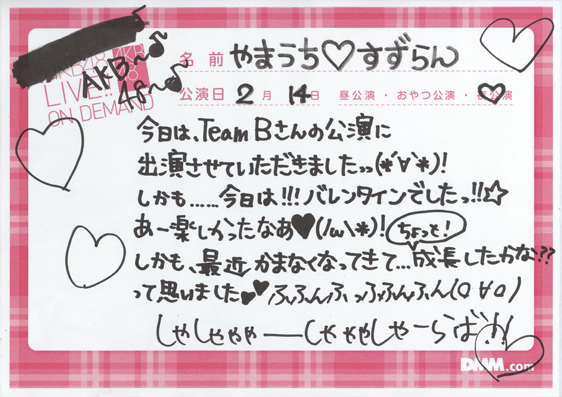 AKB48 AKB48
LIVE!!
ON DEMAND
AKB〜♪
48〜♪
名前 やまうち♡すずらん
公演日 2月 14日 昼公演・おやつ公演・夜公演
今日は、Team Bさんの公演に
出演させていただきましたっっ(*´∀`*)!
しかも……今日は!!!バレンタインでしたっ!!☆
あー楽しかったなあ♥(/ω\*)! ちょっと!
しかも、最近かまなくなってきて…成長したかな??
って思いました♥♥ふふんふっふふんふん(○∀○)
しゃしゃゃゃーーしゃゃゃしゃーらば!!
DMM.com